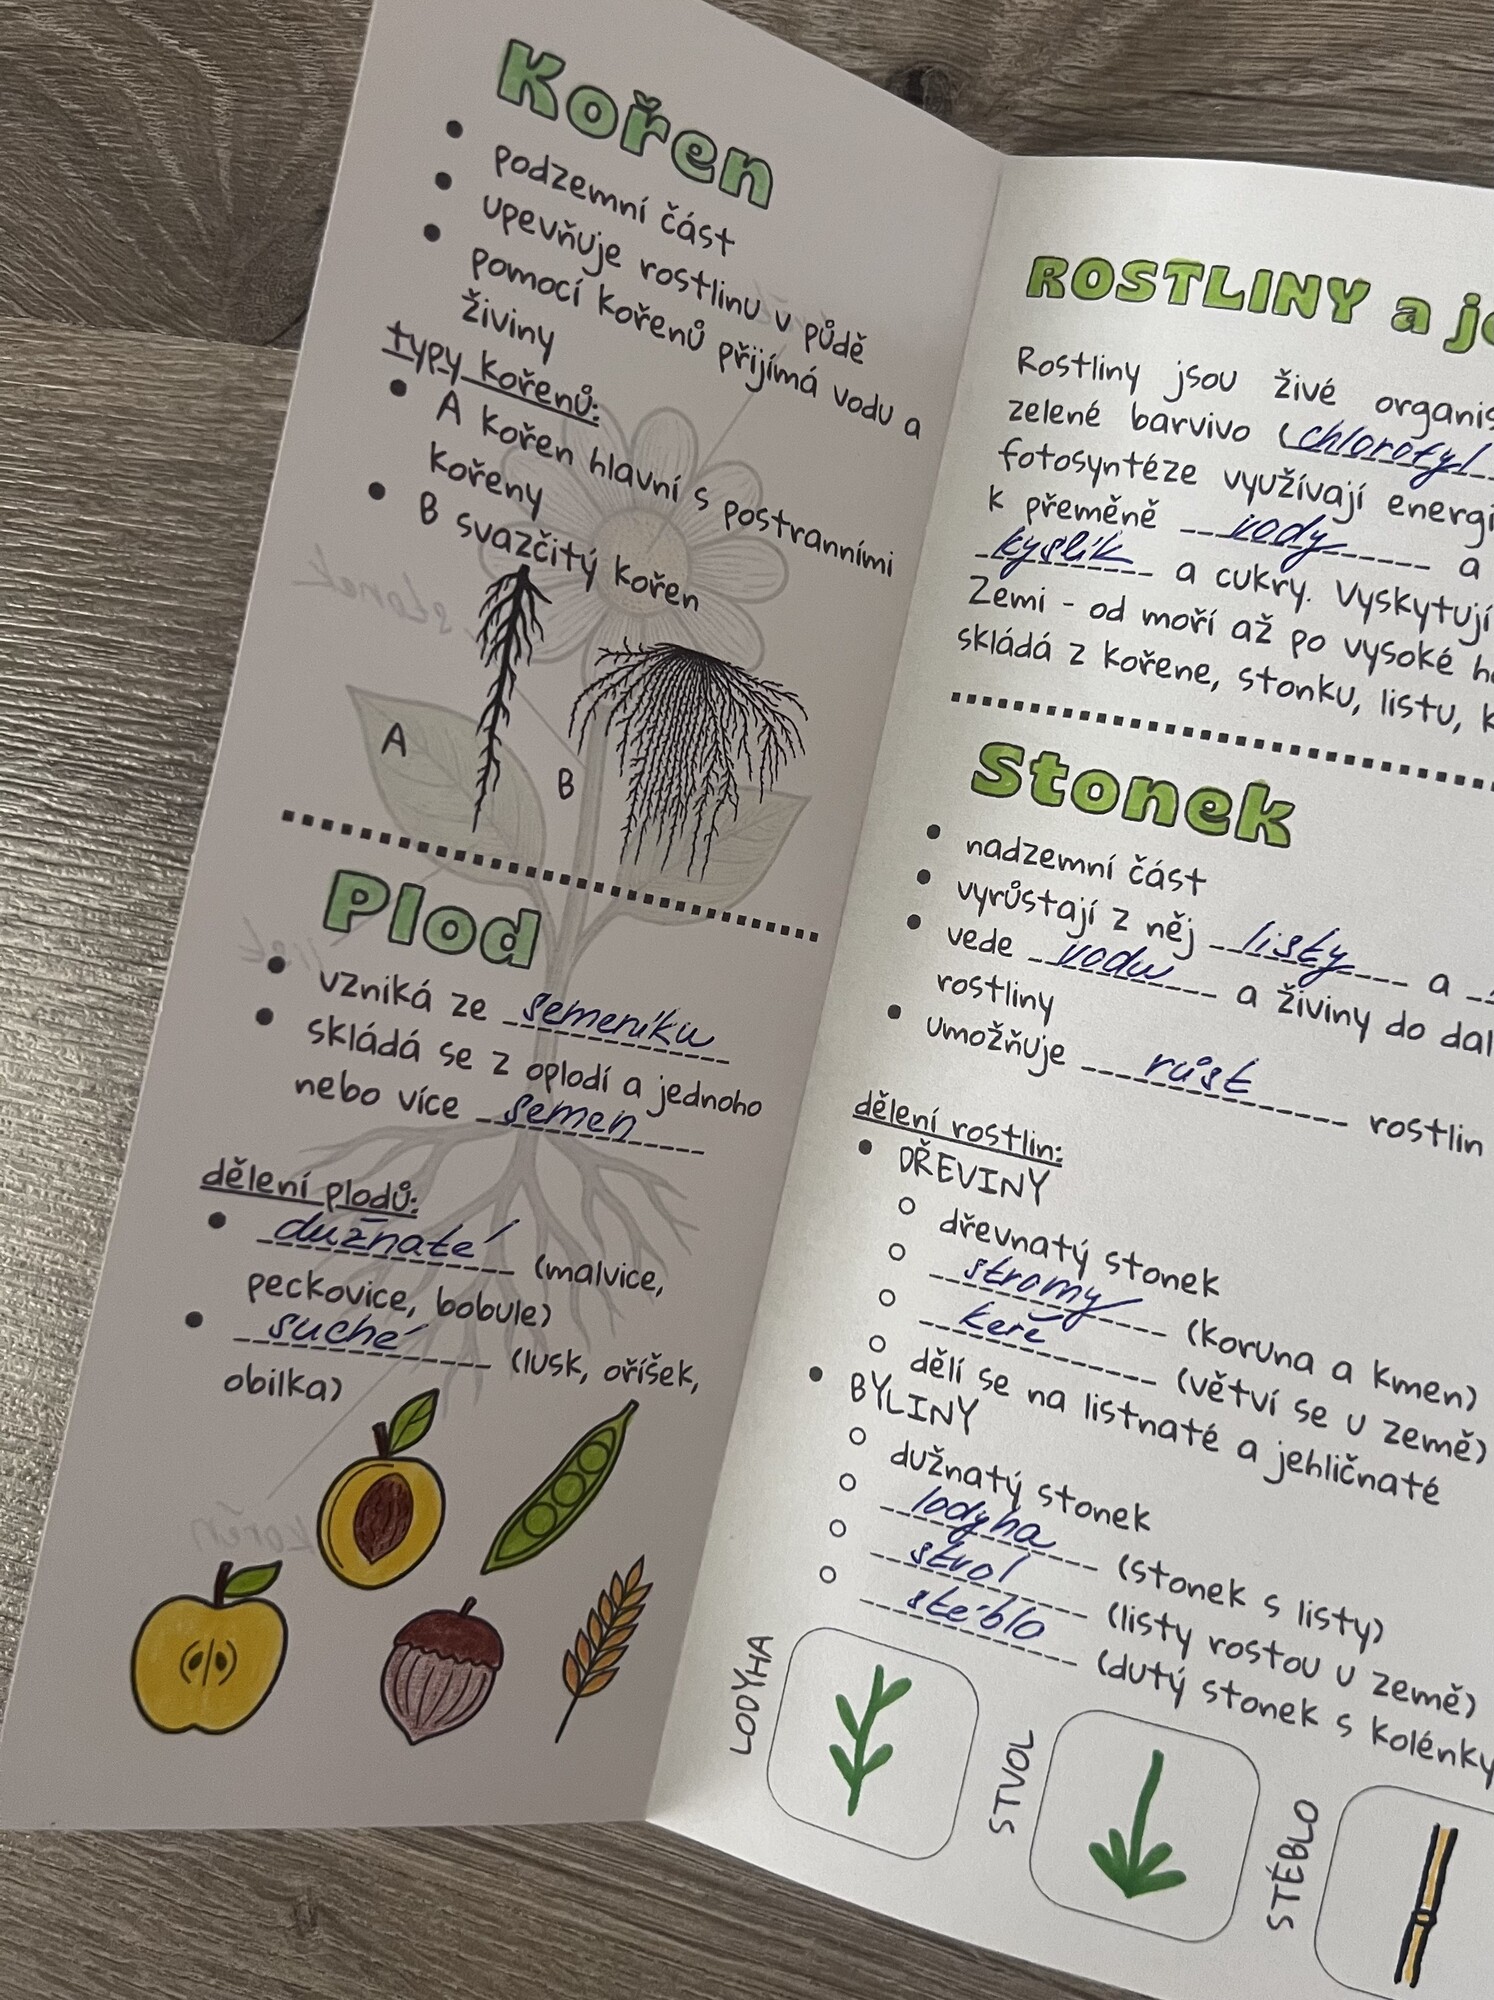 Kořen
podzemní část
upevňuje rostlinu v půdě
pomocí kořenů přijímá vodu a
živiny
typy kořenů:
A kořen hlavní s postranními
kořeny
B svazčitý kořen
A
B
Plod
vzniká ze semeníku
skládá se z oplodí a jednoho
nebo více semen
dělení plodů:
dužnaté (malvice,
peckovice, bobule)
suché (lusk, oříšek,
obilka)
ROSTLINY a
Rostliny jsou živé
zelené barvivo (chlorofyl
fotosyntéze využívají
k přeměně vody a
kyslík a cukry. Vyskytují
Zemi - od moří až po vysoké
skládá z kořene, stonku, listu,
Stonek
nadzemní část
vyrůstají z něj listy a
vede vodu a živiny do
rostliny
umožňuje růst rostlin
dělení rostlin:
DŘEVINY
dřevnatý stonek
stromy (koruna a kmen)
keře (větví se u země)
dělí se na listnaté a jehličnaté
BYLINY
dužnatý stonek
lodyha (stonek s listy)
stvol (listy rostou u země)
stéblo (dutý stonek s kolénky
LODYHA
STVOL
STÉBLO
stonek
kořen